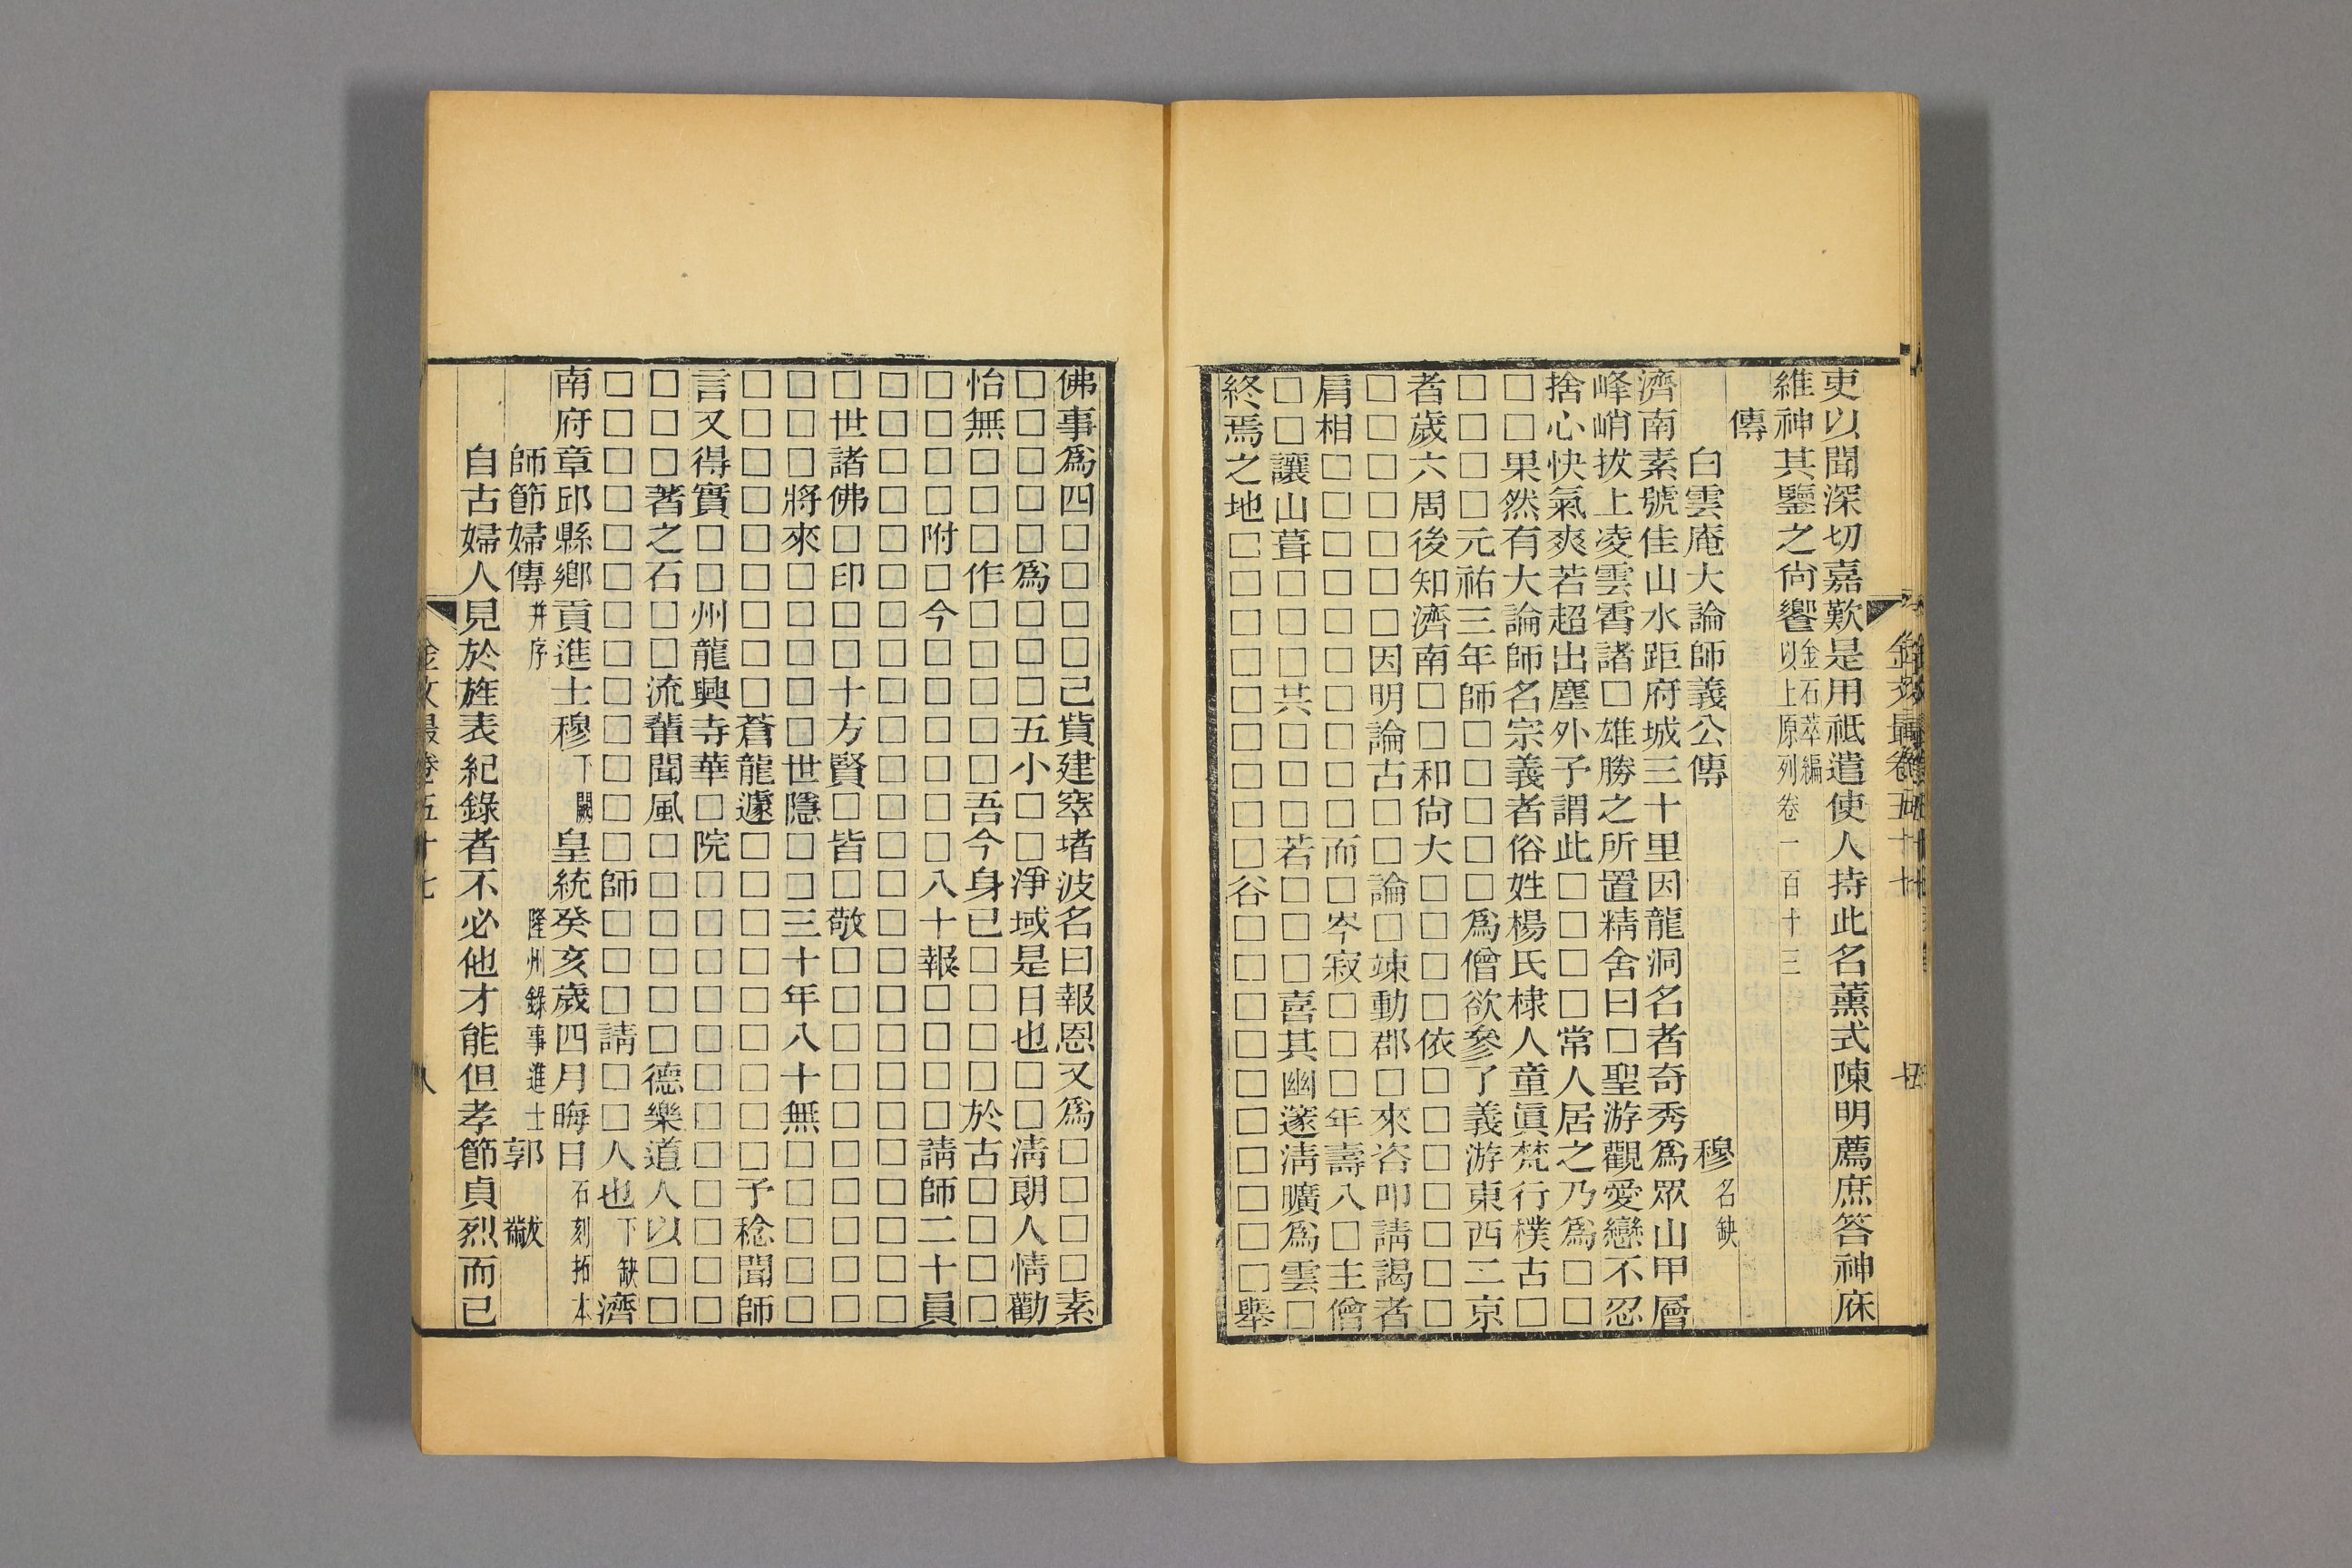 吏以聞深切嘉歎是用祗遣使人持此名薰式陳明薦庶答神庥
維神其鑒之尙饗金石萃編以上原列卷一百十三
傳
白雲庵大論師義公傳 穆名缺
濟南素號佳山水距府城三十里因龍洞名者奇秀爲眾山甲層
峰峭拔上凌雲霄諸□雄勝之所置精舍曰□聖游觀愛戀不忍
捨心快氣爽若超出塵外予謂此□□□□常人居之乃爲□□
□□果然有大論師名宗義者俗姓楊氏棣人童眞梵行樸古□
□□□□元祐三年師□□□□□爲僧欲參了義游東西二京
者歲六周後知濟南□□和尙大□□□□依□□□□□□□
□□□□□□□因明論古□□論□竦動郡□來咨叩請謁者
肩相□□□□□□□□□□而□岑寂□□□年壽八□主僧
□□讓山葺□□□共□□□若□□□喜其幽邃淸曠爲雲□
終焉之地□□□□□□□□□谷□□□□□□□□□□舉
佛事爲四□□□□己貲建窣堵波名曰報恩又爲□□□□素
□□□□□爲□□□五小□□淨域是日也□□淸朗人情勸
怡無□□□作□□□□□吾今身已□□□□於古□□□□
□□□□附□今□□□□□□八十報□□□□請師二十員
□□□□□□□□□□□□□□□□□□□□□□□□□
□世諸佛□印□□十方賢□皆□敬□□□□□□□□□□
□□□將來□□□□□世隱□□三十年八十無□□□□□
□□□□□□□□□蒼龍遽□□□□□□□□□予稔聞師
言又得實□□州龍興寺華□院□□□□□□□□□□□□
□□□著之石□□流輩聞風□□□□□□德樂道人以□□
□□□□□□□□□□□□□師□□□請□□人也下缺濟
南府章邱縣鄕貢進士穆下闕皇統癸亥歲四月晦日石刻拓本
師節婦傳幷序 隆州錄事進士郭 黻
自古婦人見於旌表紀錄者不必他才能但孝節貞烈而已
金文最卷五十七 八